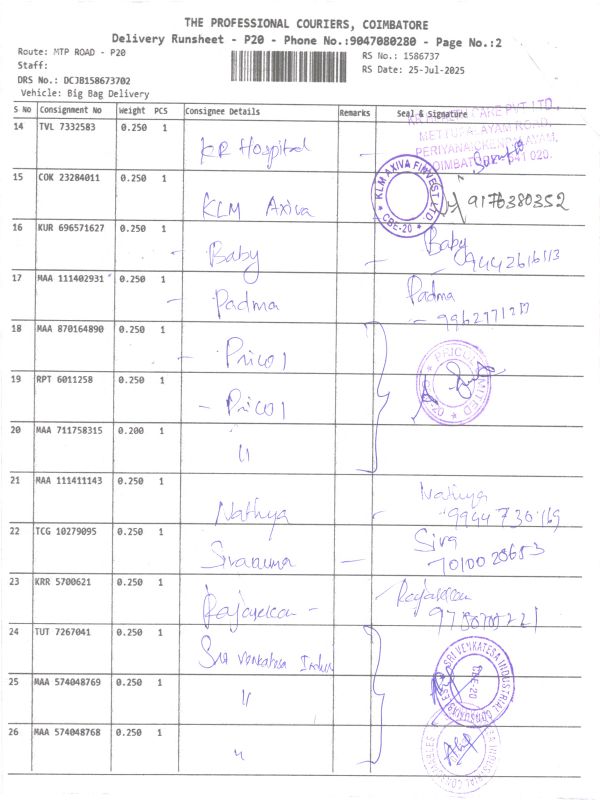 THE PROFESSIONAL COURIERS, COIMBATORE
Delivery Runsheet - P20 - Phone No.:9047080280 - Page No.:2
Route: MTP ROAD - P20
RS No.: 1586737
Staff:
RS Date: 25-Jul-2025
DRS No.: DCJB158673702
Vehicle: Big Bag Delivery
S No Consignment No Weight PCS Consignee Details Remarks Seal & Signature
METTUPALAYAM ROAD,
14 TVL 7332583 0.250 1 KR Hospital
15 COK 23284011 0.250 1 KLM Axiva 9176380352
KLM AXIVA FINVEST LTD. CBE-20
16 KUR 696571627 0.250 1 Baby Baby
9442616113
17 MAA 111402931 0.250 1 Padma Padma
18 MAA 870164890 0.250 1 Pricol
19 RPT 6011258 0.250 1 Pricol
PRICOL LIMITED
20 MAA 711758315 0.200 1 "
21 MAA 111411143 0.250 1 Nathiya Nathiya
9944730169
22 TCG 10279095 0.250 1 Siva
7010028653
23 KRR 5700621 0.250 1 Rajasekar Rajasekar
24 TUT 7267041 0.250 1 Sri Venkatesa Indus
SRI VENKATESA INDUSTRIAL CONSUMABLES CBE-20
25 MAA 574048769 0.250 1 "
26 MAA 574048768 0.250 1 "